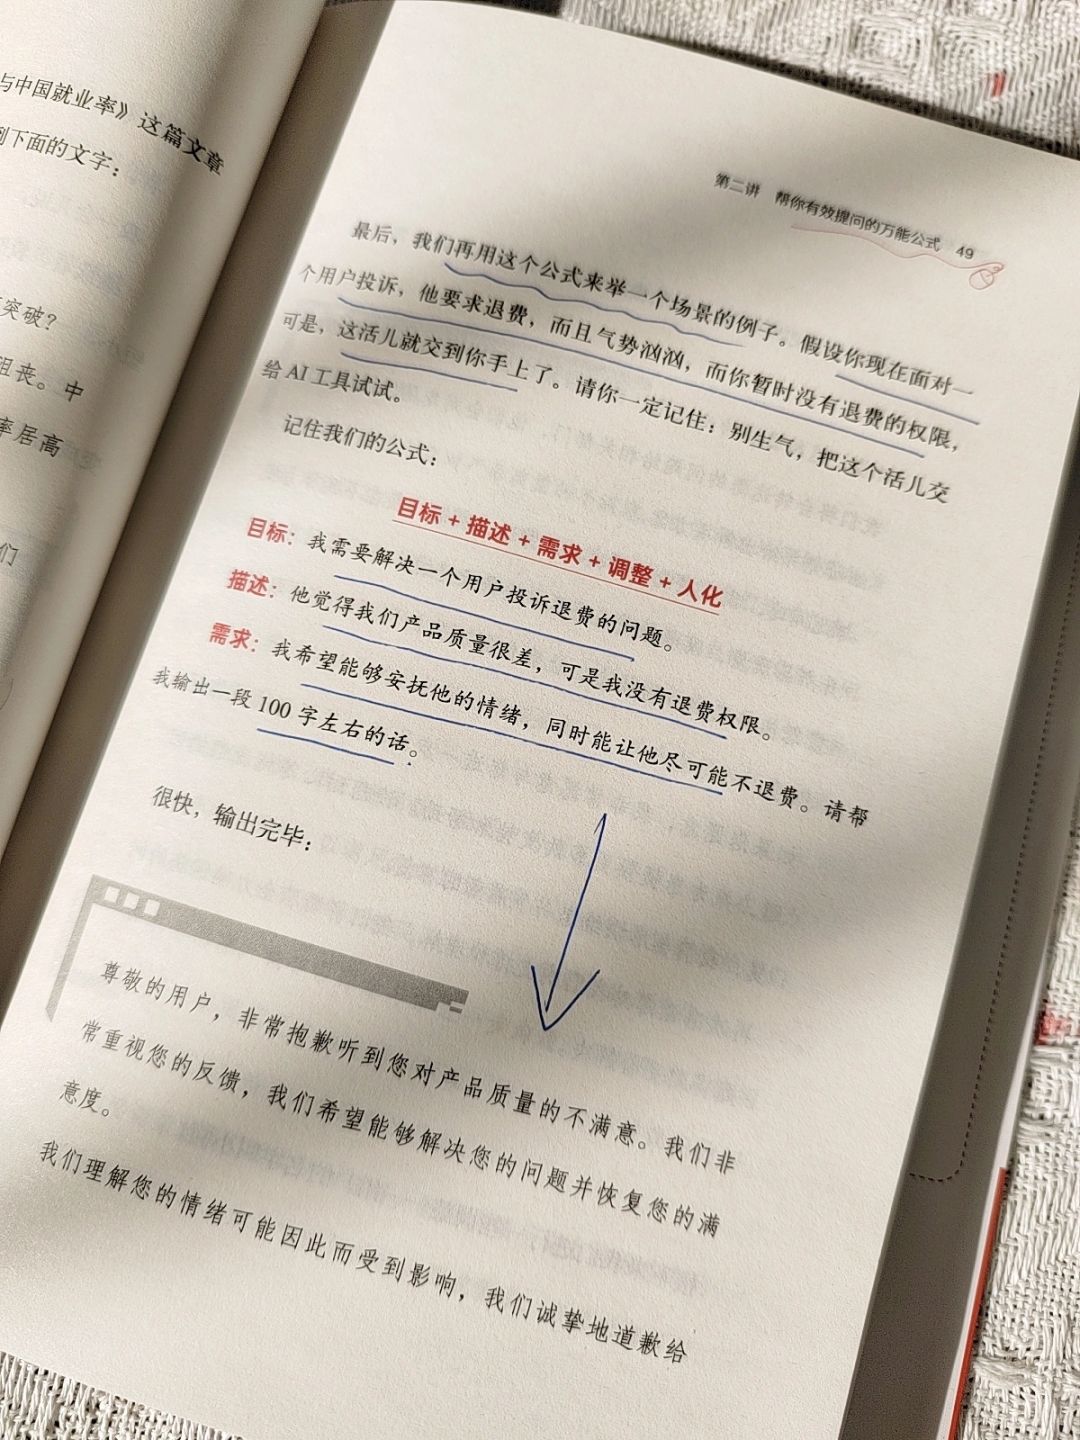 与中国就业率》这篇文章
到下面的文字：
突破？
沮丧。中
率居高
们
第二讲 帮你有效提问的万能公式 49
最后，我们再用这个公式来举一个场景的例子。假设你现在面对一
个用户投诉，他要求退费，而且气势汹汹，而你暂时没有退费的权限，
可是，这活儿就交到你手上了。请你一定记住：别生气，把这个活儿交
给 AI 工具试试。
记住我们的公式：
目标 + 描述 + 需求 + 调整 + 人化
目标：我需要解决一个用户投诉退费的问题。
描述：他觉得我们产品质量很差，可是我没有退费权限。
需求：我希望能够安抚他的情绪，同时能让他尽可能不退费。请帮
我输出一段 100 字左右的话。
很快，输出完毕：
尊敬的用户，非常抱歉听到您对产品质量的不满意。我们非
常重视您的反馈，我们希望能够解决您的问题并恢复您的满
意度。
我们理解您的情绪可能因此而受到影响，我们诚挚地道歉给